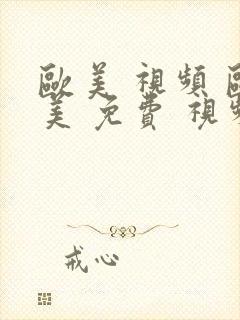 歐美視頻歐
美免費視頻
戒心